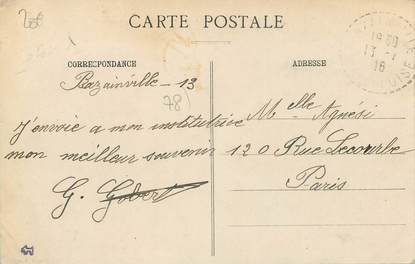 CARTE POSTALE
CORRESPONDANCE
ADRESSE
Bazainville - 13
78
J'envoie a mon institutrice
mon meilleur souvenir
G. Gobert
Melle Agnési
120 Rue Lecourbe
Paris
13 - 1
16